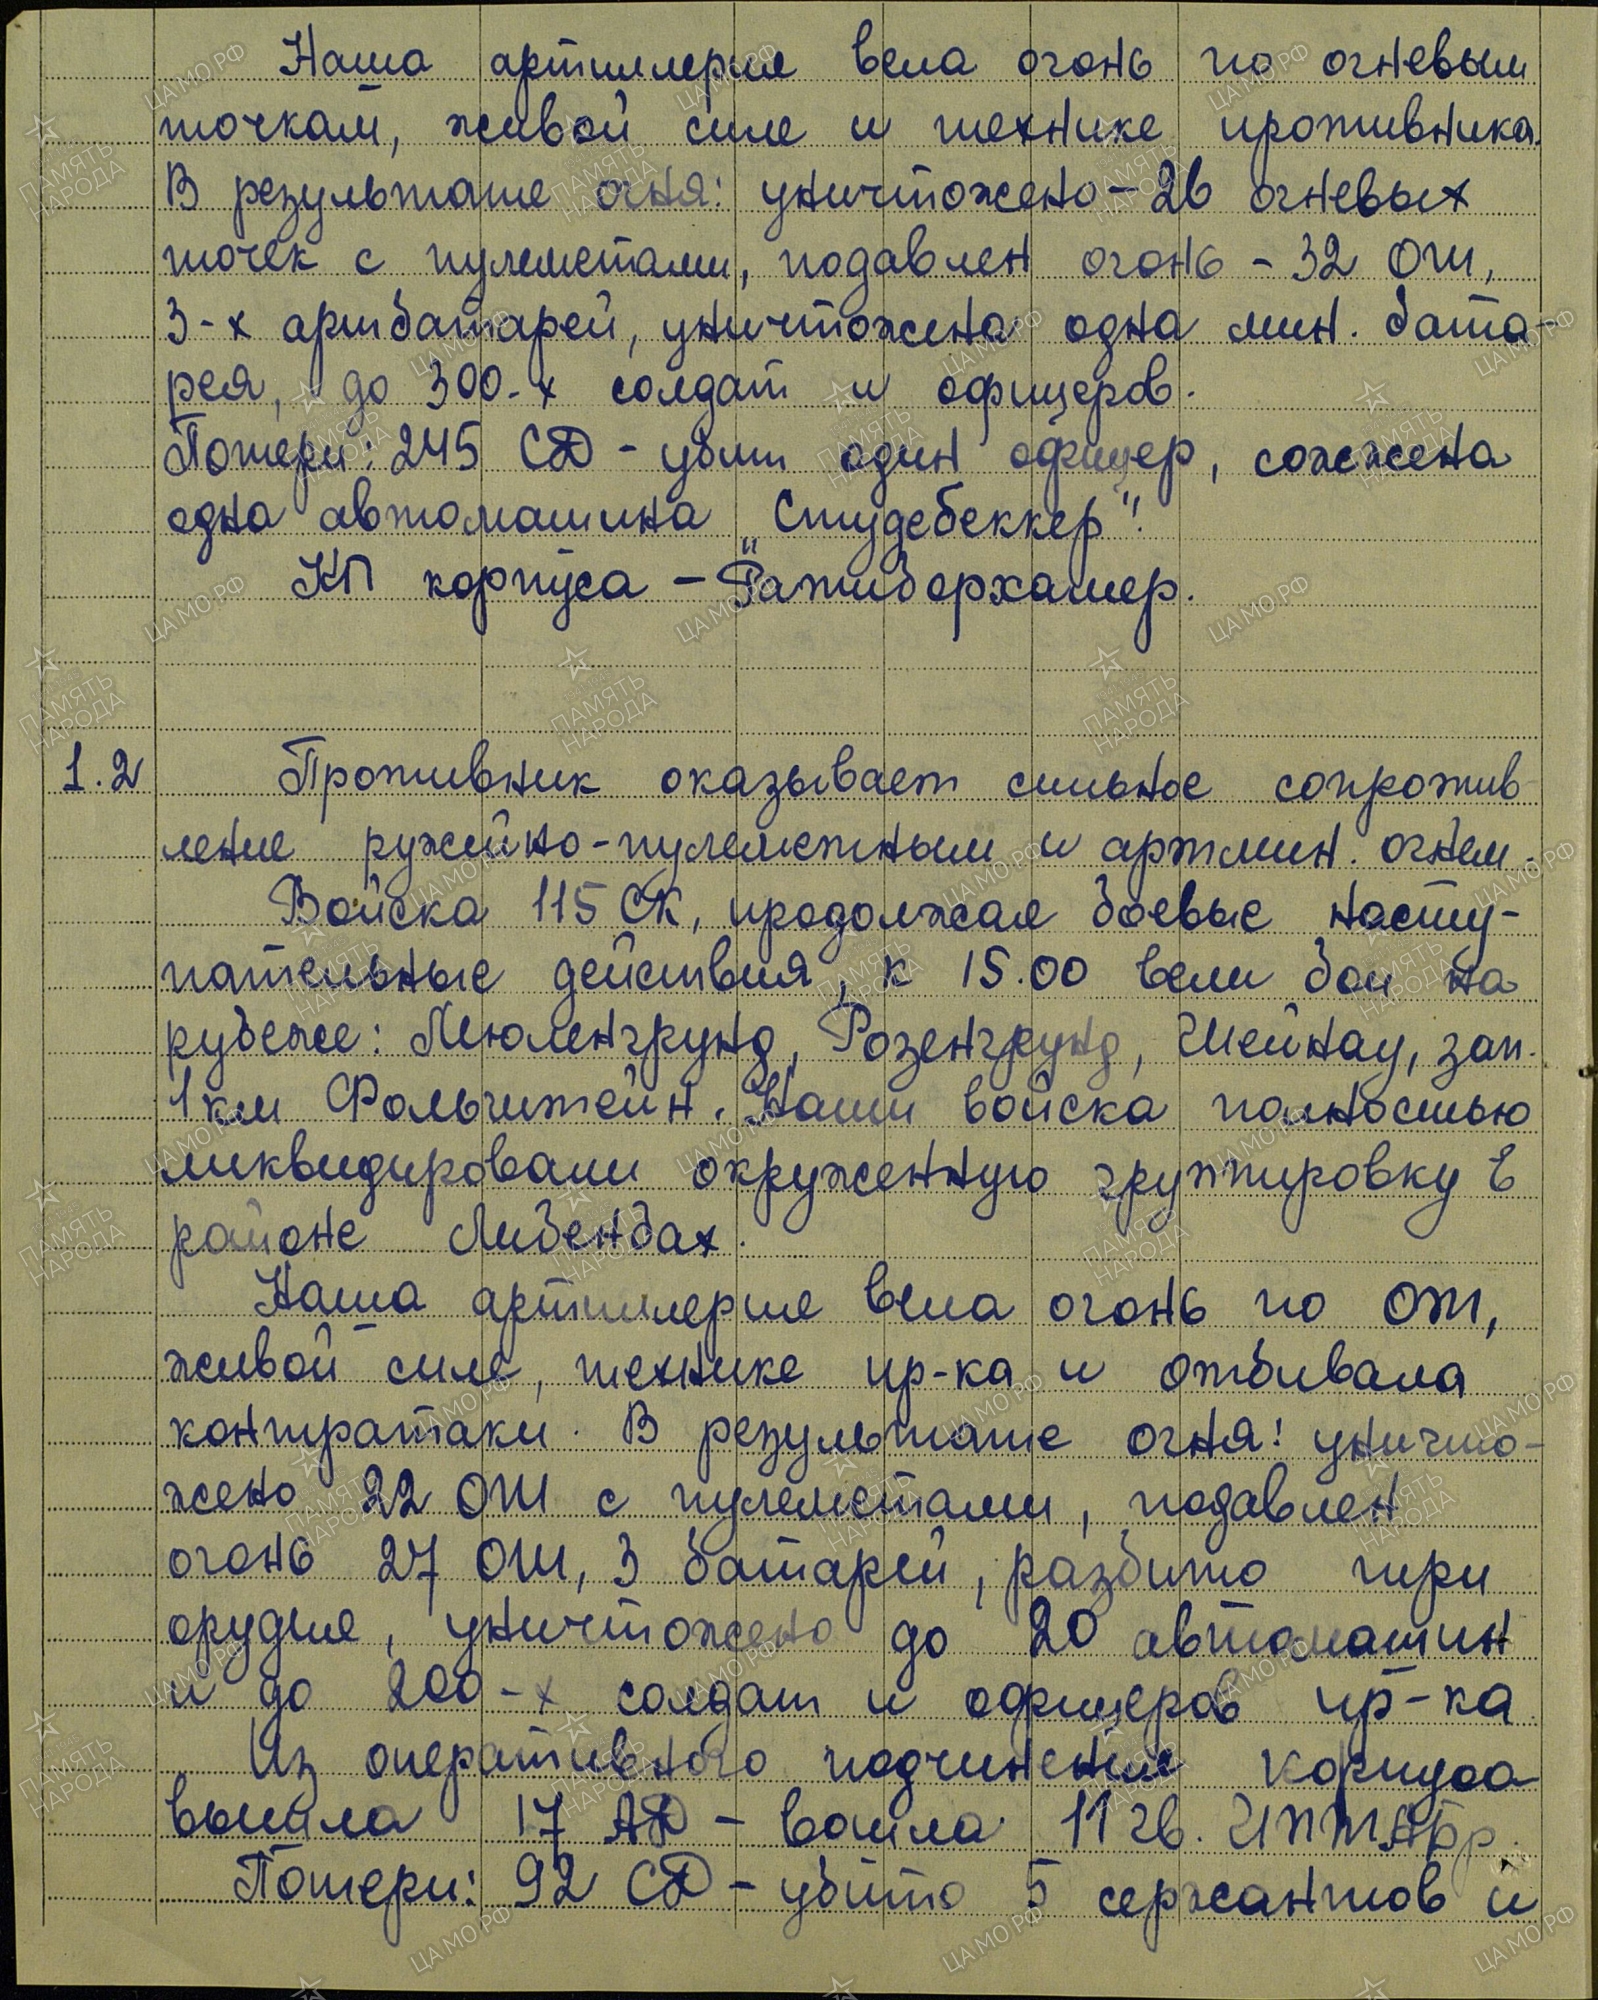 Наша артиллерия вела огонь по огневым
точкам, живой силе и технике противника.
В результате огня: уничтожено - 26 огневых
точек с пулеметами, подавлен огонь - 32 ОТ,
3-х артбатарей, уничтожена одна мин. бата-
рея, до 300-х солдат и офицеров.
Потери: 245 СД - убит один офицер, сожжена
одна автомашина „Студебеккер".
КП корпуса - Ратиборхамер.
1.2 Противник оказывает сильное сопротив-
ление ружейно-пулеметным и артмин. огнем.
Войска 115 СК, продолжая боевые насту-
пательные действия, к 15.00 вели бои на
рубеже: Мюленгрунд, Розенгрунд, Шейнау, зап.
1 км Фольчштейн. Наши войска полностью
ликвидировали окруженную группировку в
районе Либенбах.
Наша артиллерия вела огонь по ОТ,
живой силе, технике пр-ка и отбивала
контратаки. В результате огня: уничто-
жено 22 ОТ с пулеметами, подавлен
огонь 27 ОТ, 3 батарей, разбито три
орудия, уничтожено до 20 автомашин
и до 200-х солдат и офицеров пр-ка.
Из оперативного подчинения корпуса
вышла 17 АД - вошла 11 гв. ИПТАбр.
Потери: 92 СД - убито 5 сержантов и
ПАМЯТЬ НАРОДА
ЦАМО РФ